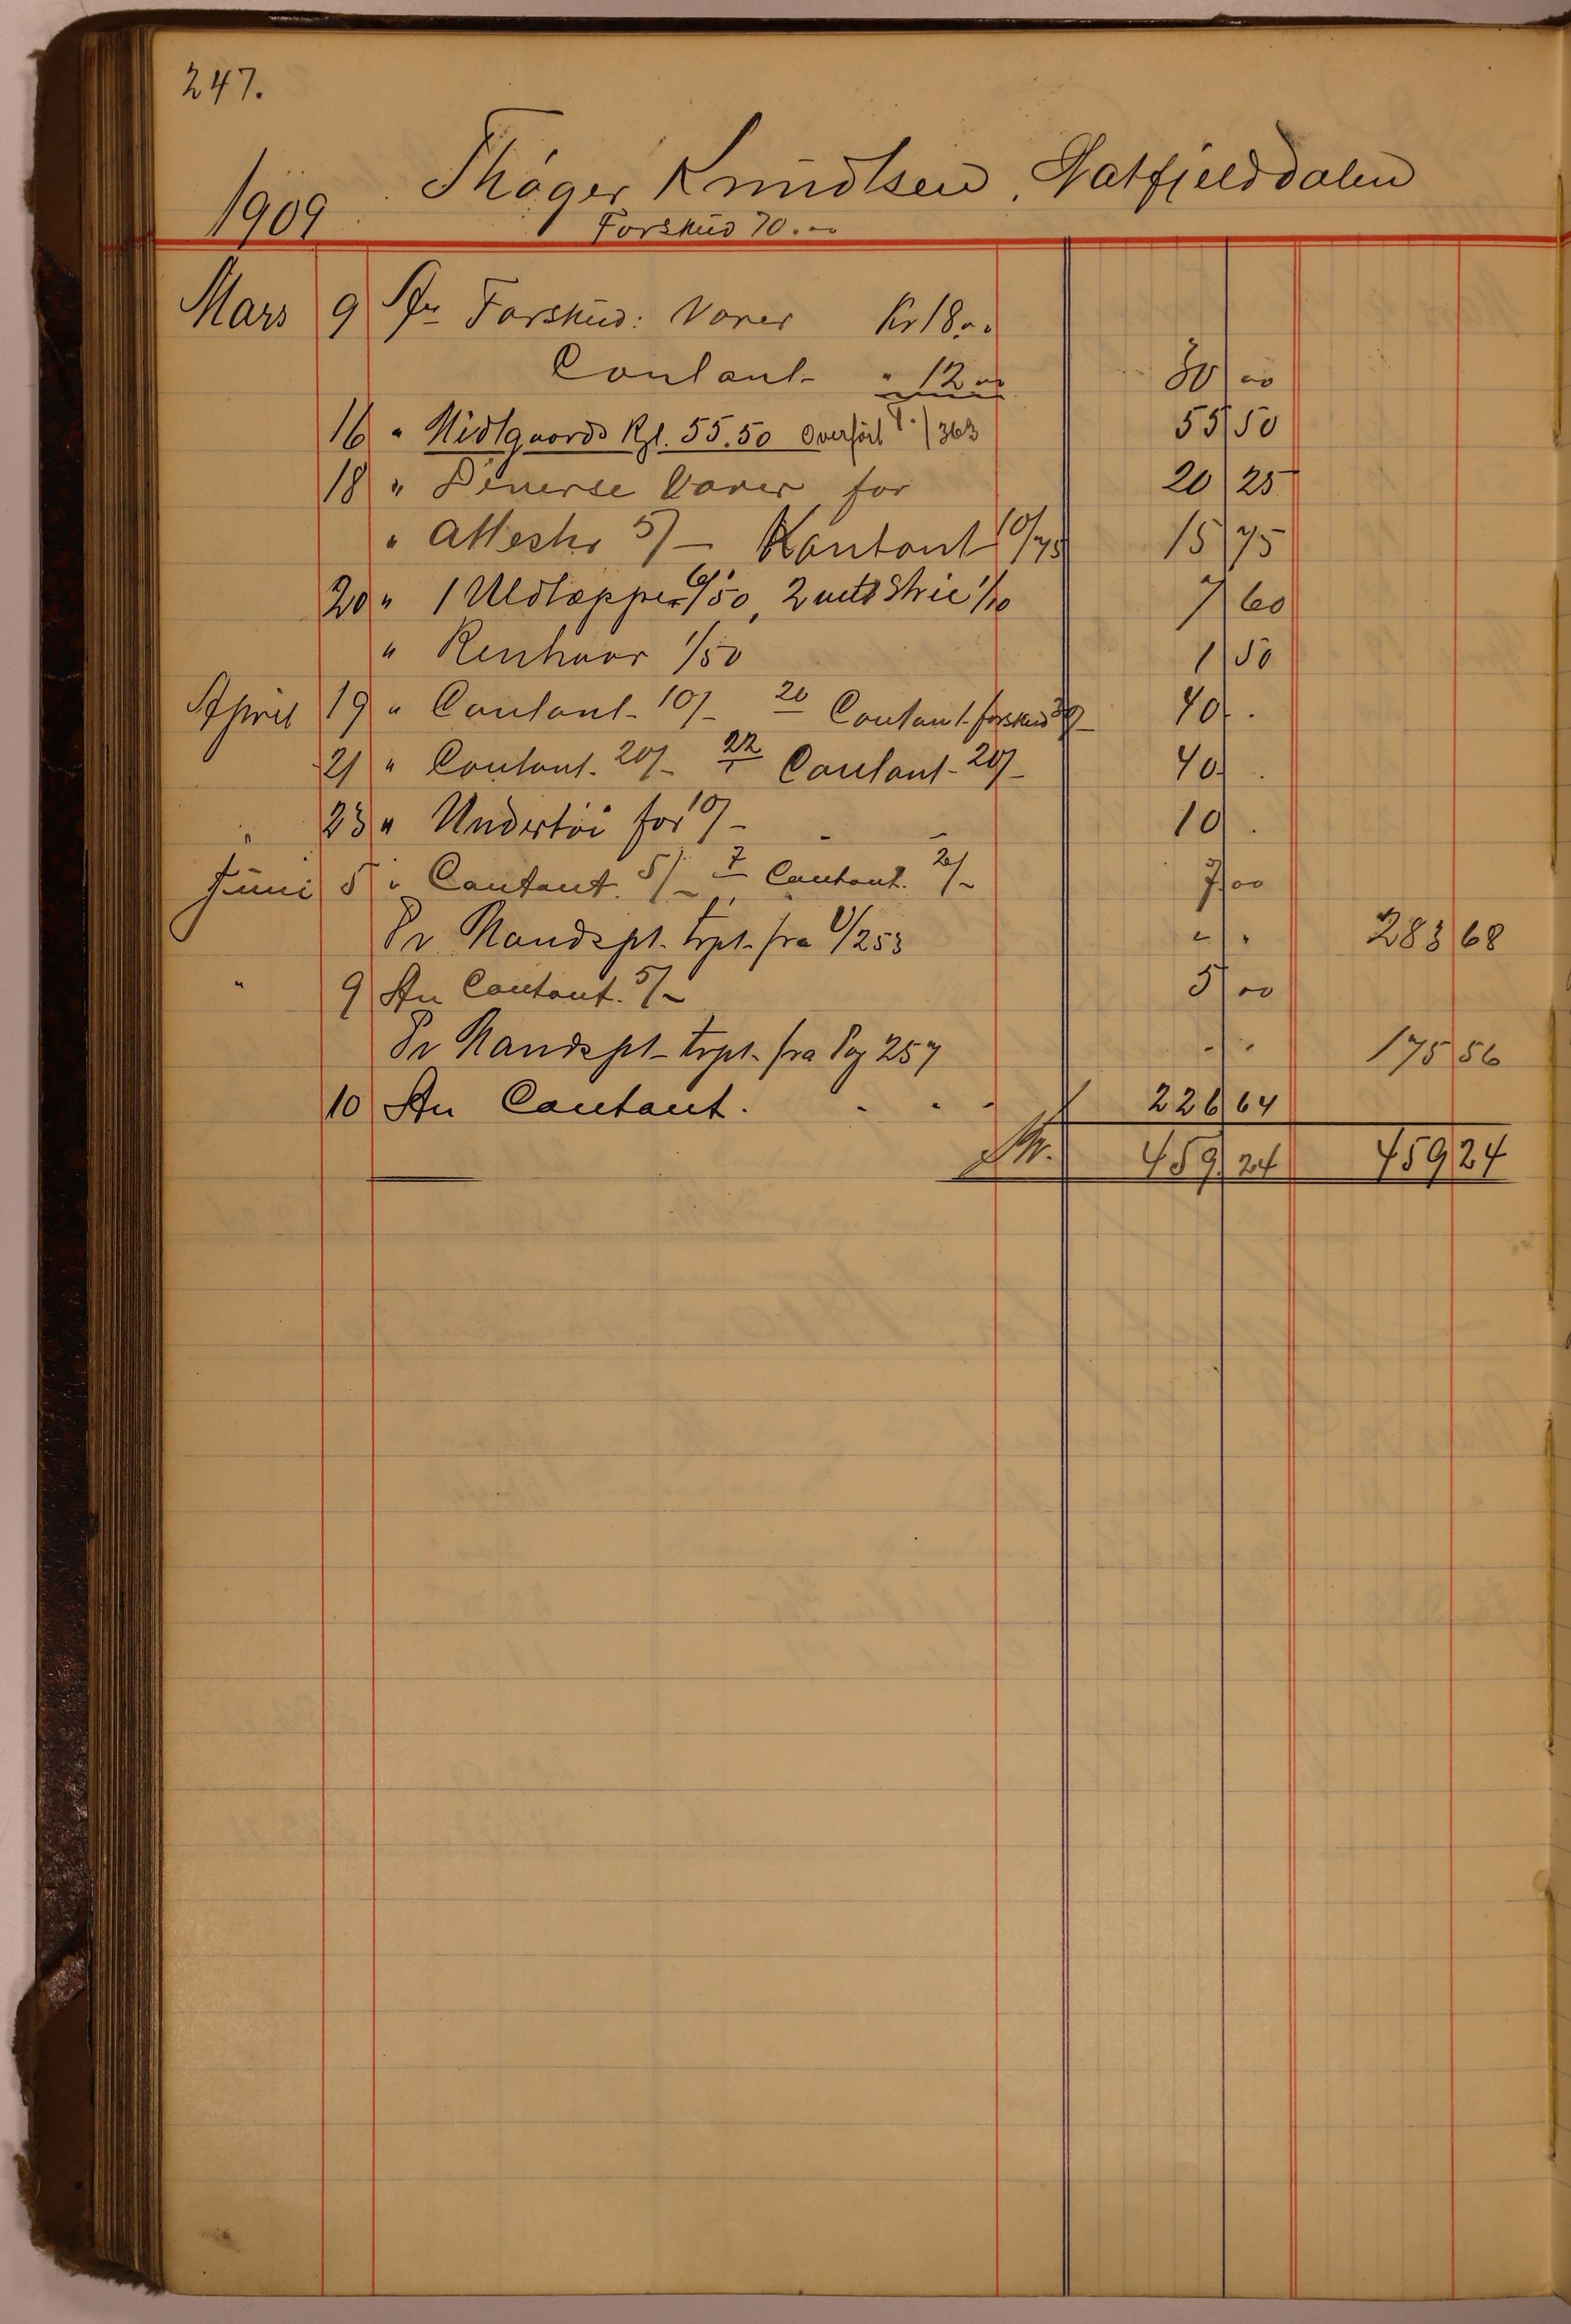 247.
1909 Thøger Knudtsen, Hatfjelddalen
Forskud 70.00
Mars 9 An Forskud: Varer Kr 18.00
Contant " 12.00 30 00
16 " Midtgaards Rg. 55.50 Overført P. / 363 55 50
18 " Diverse Varer for 20 25
" Attester 5/- Kontant 10/75 15 75
20 " 1 Uldtæppe 6/50, 2 mtr Strie 1/10 7 60
" Renhaar 1/50 1 50
April 19 " Contant 10/- 20 Contant forskud 30/- 40 .
21 " Contant 20/- 22 Contant 20/- 40 .
" 23 " Undertøi for 10/- 10 .
Juni 5 " Contant. 5/- 7 Contant. 2/- 7 00
Pr Mandspl. trpt. fra P/253 " " 283 68
" 9 An Contant. 5/- 5 00
Pr Mandspl. trpt. fra Pag 257 " " 175 56
10 An Contant. 226 64
Kr. 459 24 459 24